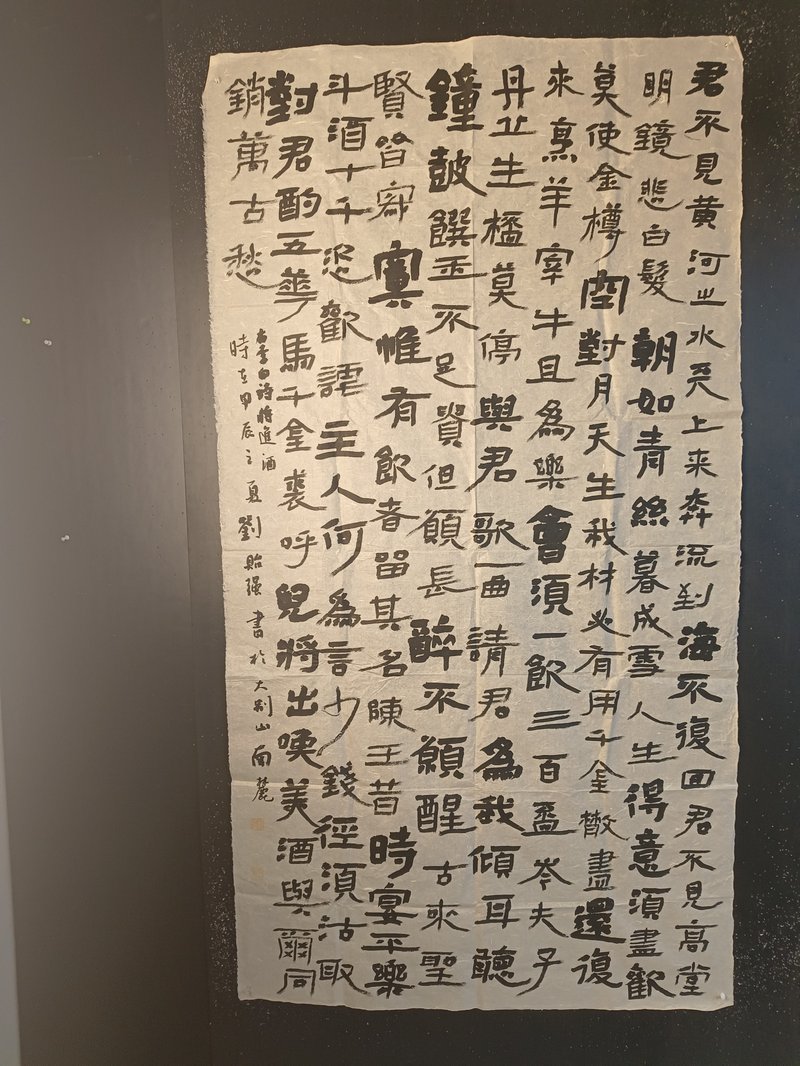 君不見黄河之水天上来奔流到海不復回君不見高堂
明鏡悲白髮朝如青絲暮成雪人生得意須盡歡
莫使金樽空對月天生我材必有用千金散盡還復
来烹羊宰牛且為樂會須一飲三百盃岑夫子
丹丘生莫停與君歌一曲請君為我傾耳聽
鐘鼓饌玉不足貴但願長醉不願醒古来聖
賢皆寂寞惟有飲者留其名陳王昔時宴平樂
斗酒十千恣歡謔主人何為言少錢徑須沽取
對君酌五華馬千金裘呼兒將出喚美酒與爾同
銷萬古愁
右李白詩將進酒
時在甲辰之夏劉貽强書於大别山南麓